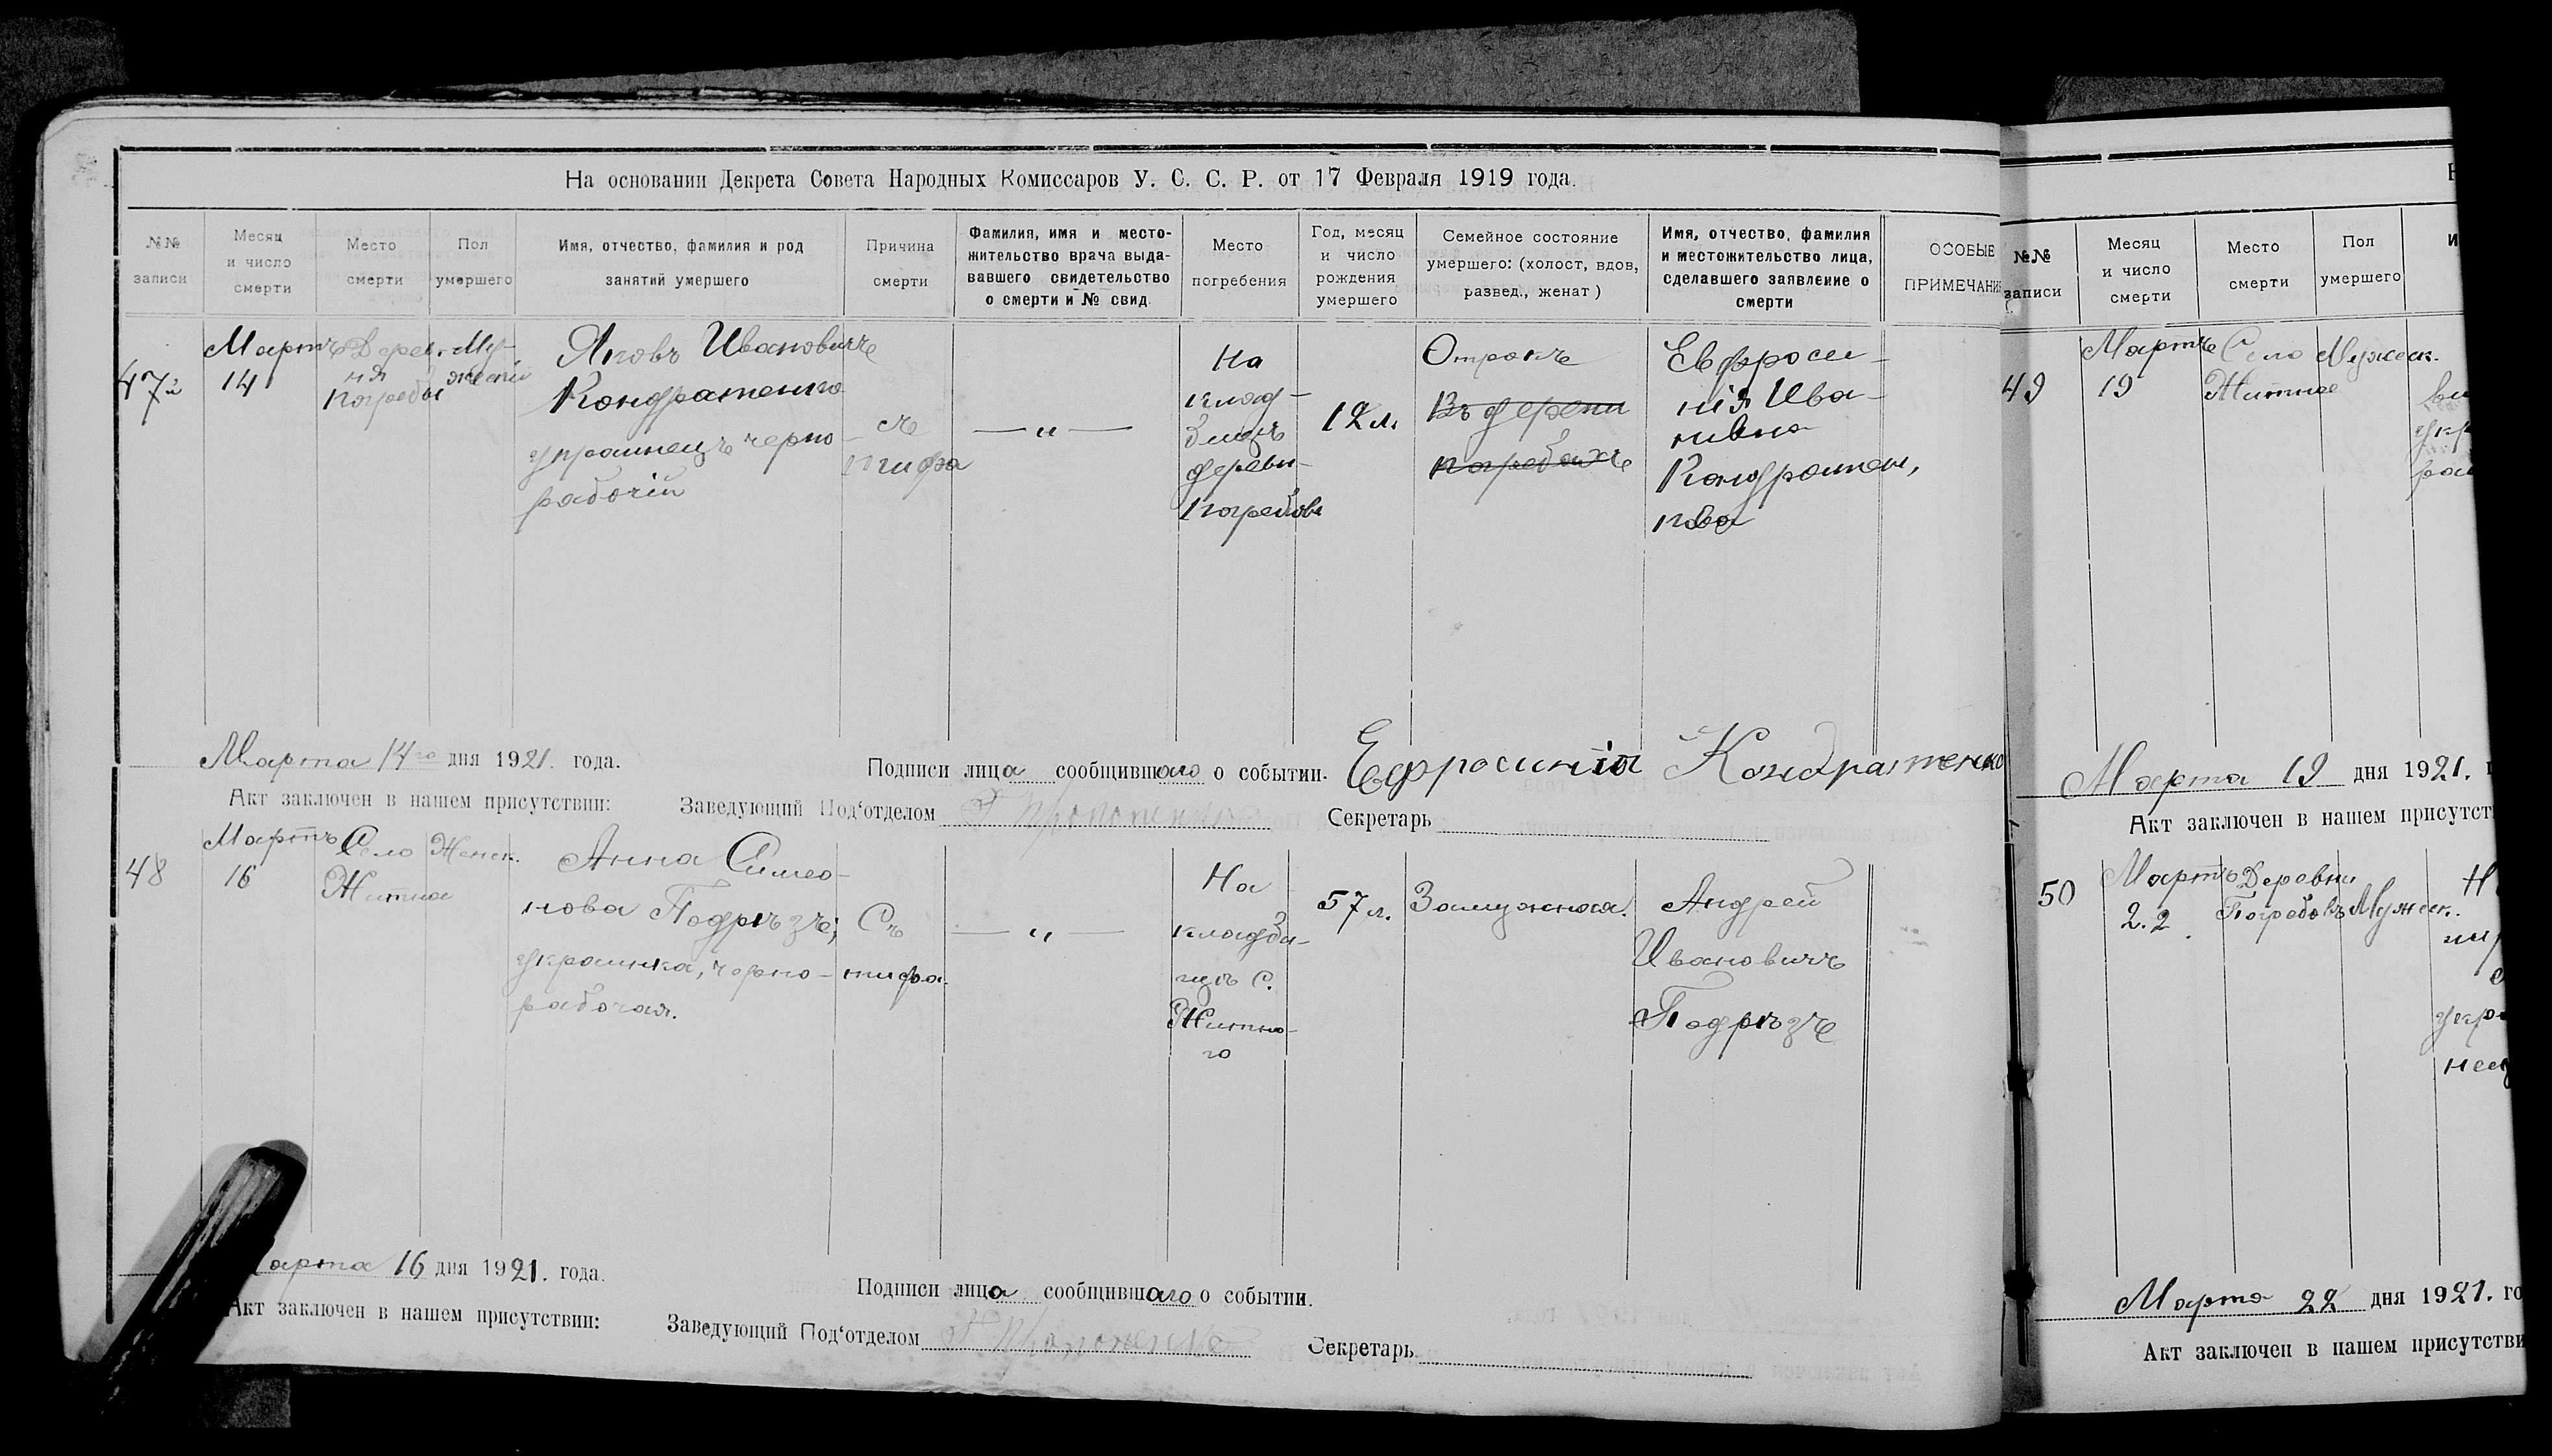 На основании Декрета Совета Народных Комиссаров У. С. С. Р. от 17 Февраля 1919 года.
№№ записи
Месяц и число смерти
Место смерти
Пол умершего
Имя, отчество, фамилия и род занятий умершего
Причина смерти
Фамилия, имя и место-
жительство врача выда-
вавшего свидетельство
о смерти и № свид.
Место погребения
Год, месяц и число рождения умершего
Семейное состояние
умершего: (холост, вдов,
развед., женат)
Имя, отчество, фамилия
и местожительство лица,
сделавшего заявление о
смерти
ОСОБЫЕ
ПРИМЕЧАНИ
47й
Мартъ
14
Дерев.
ня
Погребы
Му-
жской
Яковъ Ивановичъ
Кондратенко
украинецъ черно-
рабочій
съ
тифа
— „ —
На
клад-
бищѣ
деревн-
Погребовъ
12 л.
Отрокъ
Въ деревни
Погребахъ
Евфроси-
нія Ива-
нивна
Кондратен,
кова
Марта 14го дня 1921. года.
Подписи лица сообщившаго о событии.
Ефросинія Кондратенко
Акт заключен в нашем присутствии:
Заведующий Под‘отделом
Секретарь
48
Мартъ
16
Село
Житна
Женск.
Анна Симео-
нова Подрѣзъ;
украинка, черно-
рабочая.
Съ
тифа.
— „ —
На
кладби-
щѣ с.
Житно-
го
57 л.
Замужная.
Андрей
Ивановичъ
Подрѣзъ
арта 16 дня 1921. года.
Подписи лица сообщившаго о событии.
Акт заключен в нашем присутствии:
Заведующий Под‘отделом
Секретарь
№№ записи
Месяц и число смерти
Место смерти
Пол умершего
49
Мартъ
19
Село
Житное
Мужеск.
Марта 19 дня 1921.
Акт заключен в нашем присутст
50
Мартъ
22.
Деревни
Погребовъ
Мужеск.
Марта 22 дня 1921. го
Акт заключен в нашем присутстви